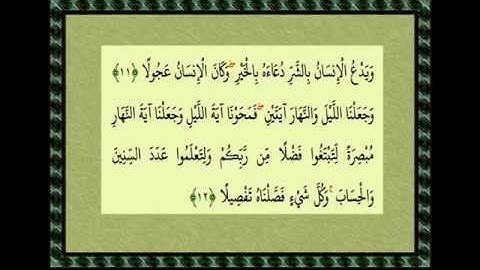 وَيَدْعُ الْإِنسَانُ بِالشَّرِّ دُعَاءَهُ بِالْخَيْرِ ۖ وَكَانَ الْإِنسَانُ عَجُولًا ﴿١١﴾
وَجَعَلْنَا اللَّيْلَ وَالنَّهَارَ آيَتَيْنِ ۖ فَمَحَوْنَا آيَةَ اللَّيْلِ وَجَعَلْنَا آيَةَ النَّهَارِ
مُبْصِرَةً لِّتَبْتَغُوا فَضْلًا مِّن رَّبِّكُمْ وَلِتَعْلَمُوا عَدَدَ السِّنِينَ
وَالْحِسَابَ ۚ وَكُلَّ شَيْءٍ فَصَّلْنَاهُ تَفْصِيلًا ﴿١٢﴾